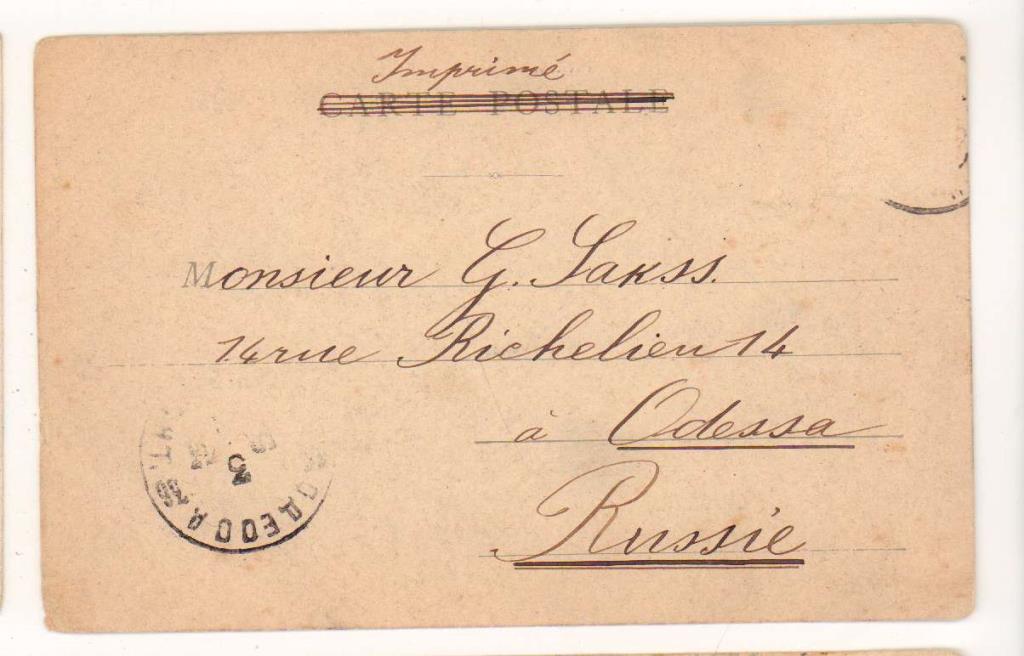 Imprimé
CARTE POSTALE
Monsieur G. Sakss.
14 rue Richelieu 14
à Odessa
Russie
ОДЕССА
3